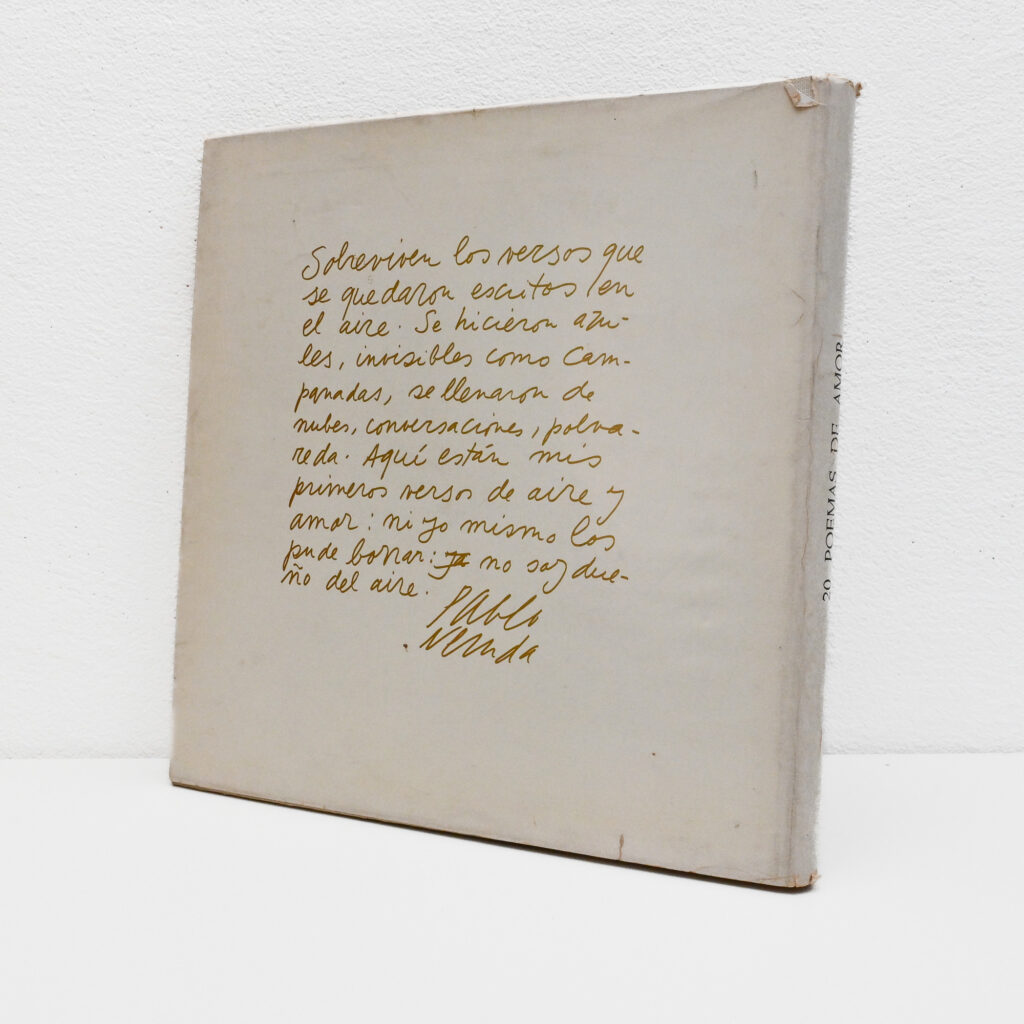 Sobreviven los versos que
se quedaron escritos en
el aire. Se hicieron azu-
les, invisibles como cam-
panadas, se llenaron de
nubes, conversaciones, polva-
reda. Aquí están mis
primeros versos de aire y
amor: ni yo mismo los
pude borrar: ya no soy due-
ño del aire.
Pablo
Neruda
20 POEMAS DE AMOR